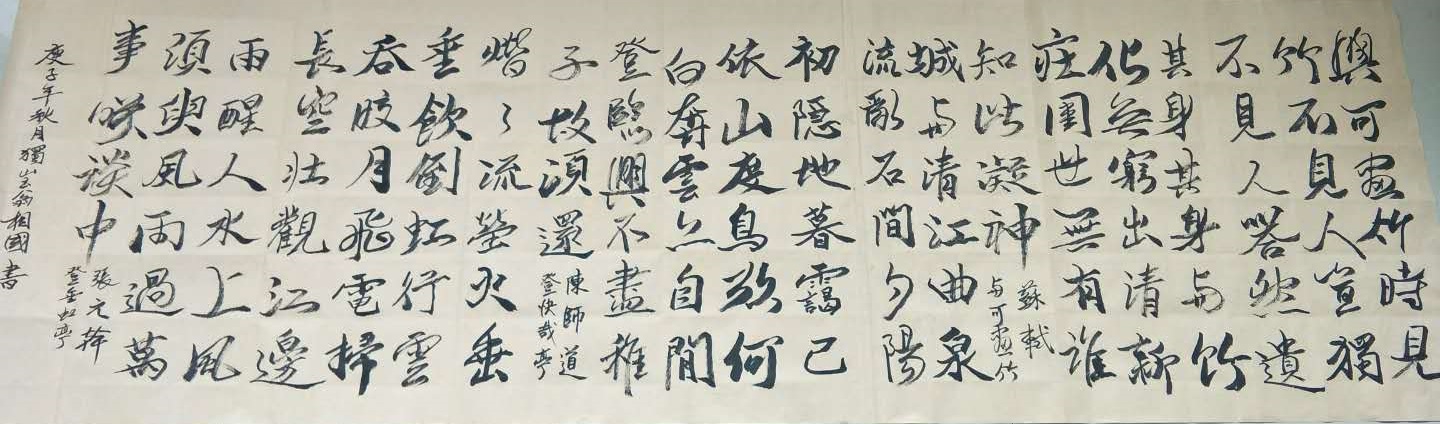 與可畫竹時見
竹不見人豈獨
不見人嗒然遺
其身其身與竹
化無窮出清新
莊周世無有誰
知此凝神
蘇軾
與可畫竹
城與清江曲泉
流亂石間夕陽
初隱地暮靄已
依山度鳥欲何
向奔雲亦自閒
登臨興不盡稚
子故須還
陳師道
登快哉亭
熠〻流螢火垂
垂飲倒虹行雲
吞皎月飛電掃
長空壯觀江邊
雨醒人水上風
須臾風雨過萬
事咲談中
張元幹
登垂虹亭
庚子年秋月獨翁相國書